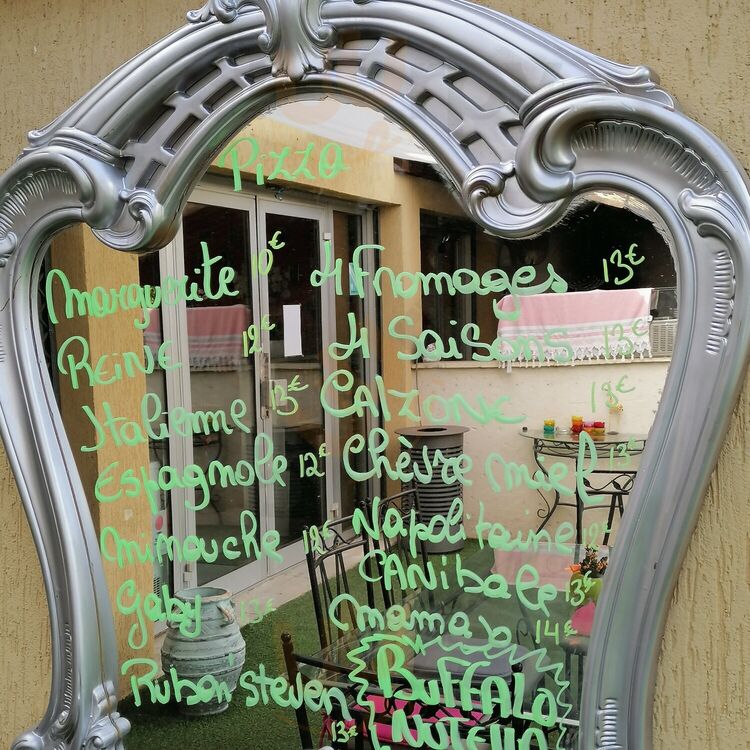 Pizza
Marguerite 10€
REINE 12€
Italienne 13€
Espagnole 12€
Minouche 12€
Gaby 13€
Ruben'steven 13€
4 Fromages 13€
4 Saisons 13€
CALZONE 13€
Chèvre miel 13€
Napolitaine 12€
CANibale 13€
Mamax 14€
BUFFALO
NUTELLA